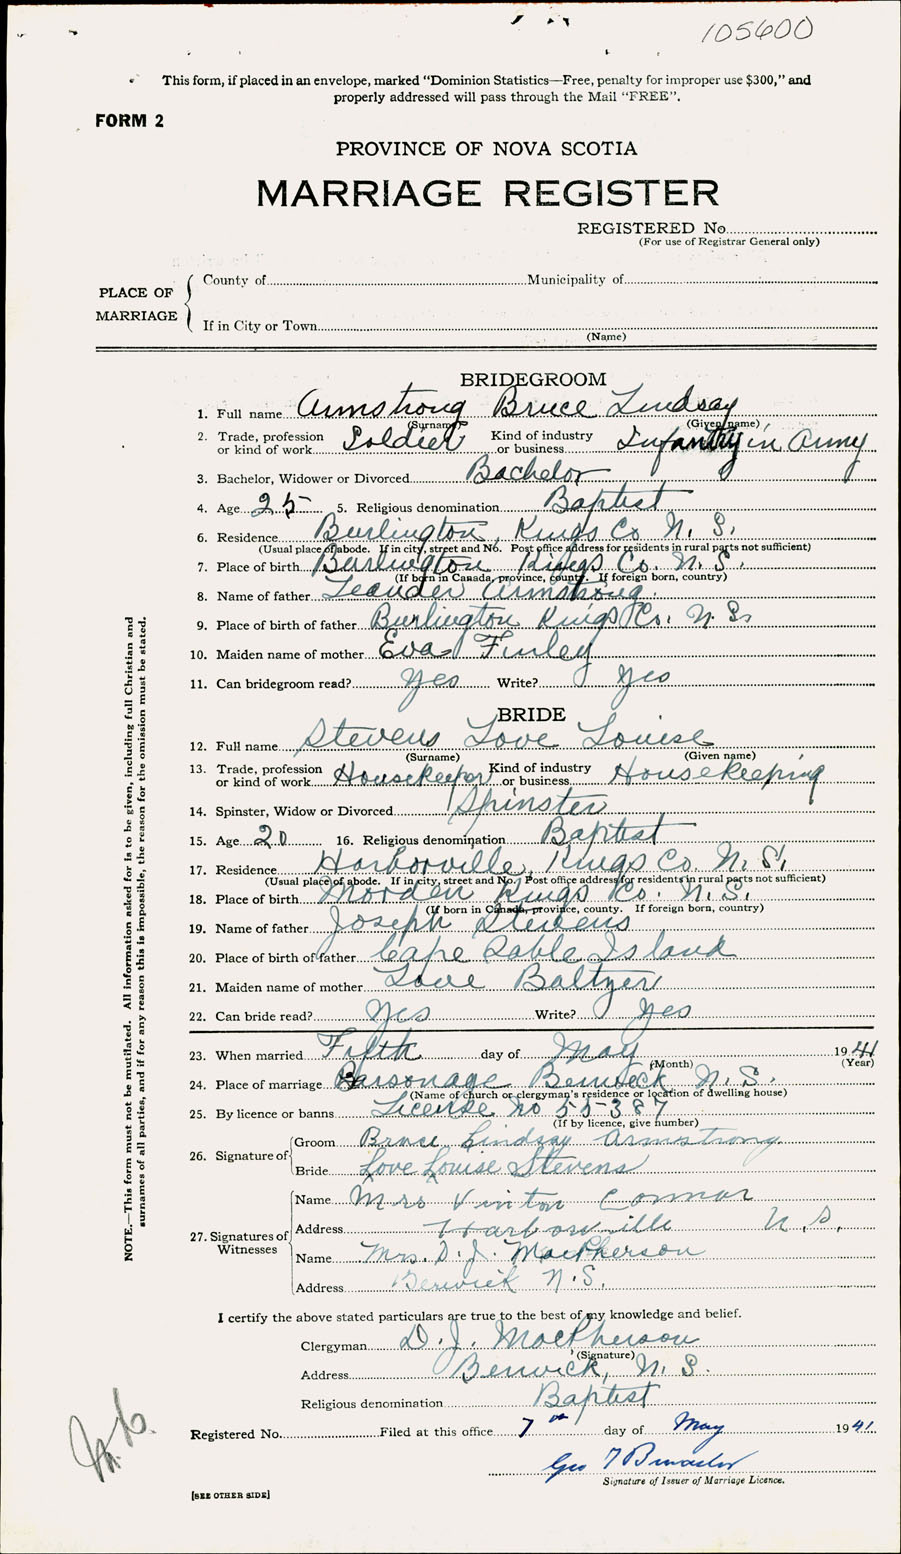 105600
This form, if placed in an envelope, marked "Dominion Statistics—Free, penalty for improper use $300," and
properly addressed will pass through the Mail "FREE".
FORM 2
PROVINCE OF NOVA SCOTIA
MARRIAGE REGISTER
REGISTERED No.
(For use of Registrar General only)
PLACE OF MARRIAGE
County of Municipality of
If in City or Town
(Name)
BRIDEGROOM
1. Full name Armstrong Bruce Lindsay
(Surname) (Given name)
2. Trade, profession or kind of work Soldier Kind of industry or business Infantry in Army
3. Bachelor, Widower or Divorced Bachelor
4. Age 25 5. Religious denomination Baptist
6. Residence Burlington, Kings Co. N. S.
(Usual place of abode. If in city, street and No. Post office address for residents in rural parts not sufficient)
7. Place of birth Burlington Kings Co. N. S.
(If born in Canada, province, county. If foreign born, country)
8. Name of father Leander Armstrong.
9. Place of birth of father Burlington Kings Co. N. S.
10. Maiden name of mother Eva Finley
11. Can bridegroom read? Yes Write? Yes
BRIDE
12. Full name Stevens Love Louise
(Surname) (Given name)
13. Trade, profession or kind of work Housekeeper Kind of industry or business Housekeeping
14. Spinster, Widow or Divorced Spinster
15. Age 20 16. Religious denomination Baptist
17. Residence Harborville, Kings Co. N. S.
(Usual place of abode. If in city, street and No. Post office address for residents in rural parts not sufficient)
18. Place of birth Morden Kings Co. N. S.
(If born in Canada, province, county. If foreign born, country)
19. Name of father Joseph Stevens
20. Place of birth of father Cape Sable Island
21. Maiden name of mother Love Baltzer
22. Can bride read? Yes Write? Yes
23. When married Fifth day of May 1941
(Month) (Year)
24. Place of marriage Parsonage Berwick N. S.
(Name of church or clergyman's residence or location of dwelling house)
25. By licence or banns License No 55387
(If by licence, give number)
26. Signature of
Groom Bruce Lindsay Armstrong
Bride Love Louise Stevens
27. Signatures of Witnesses
Name Mrs Vinton Connor
Address Harborville N. S.
Name Mrs. D. J. MacPherson
Address Berwick N. S.
I certify the above stated particulars are true to the best of my knowledge and belief.
Clergyman D. J. MacPherson
(Signature)
Address Berwick, N. S.
Religious denomination Baptist
Registered No. Filed at this office 7th day of May 1941
Geo
Signature of Issuer of Marriage Licence.
[SEE OTHER SIDE]
NOTE.—This form must not be mutilated. All information asked for is to be given, including full Christian and
surnames of all parties, and if for any reason this is impossible, the reason for the omission must be stated.